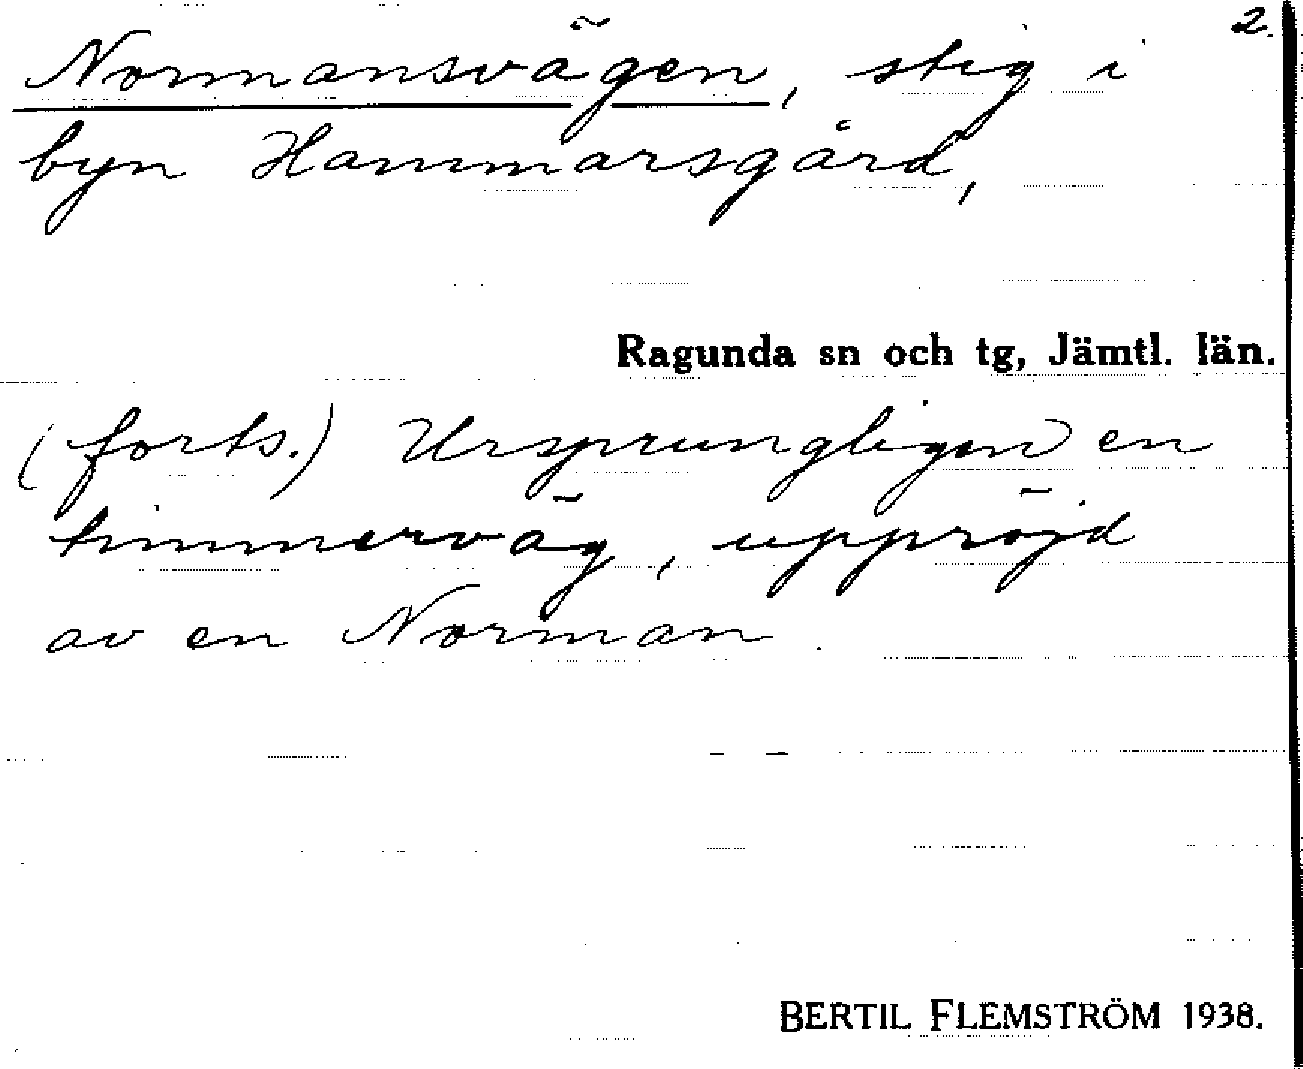 2.
Normansvägen, stig i
byn Hammarsgård,
Ragunda sn och tg, Jämtl. län.
(forts.) Ursprungligen en
timmerväg, uppröjd
av en Norman.
BERTIL FLEMSTRÖM 1938.